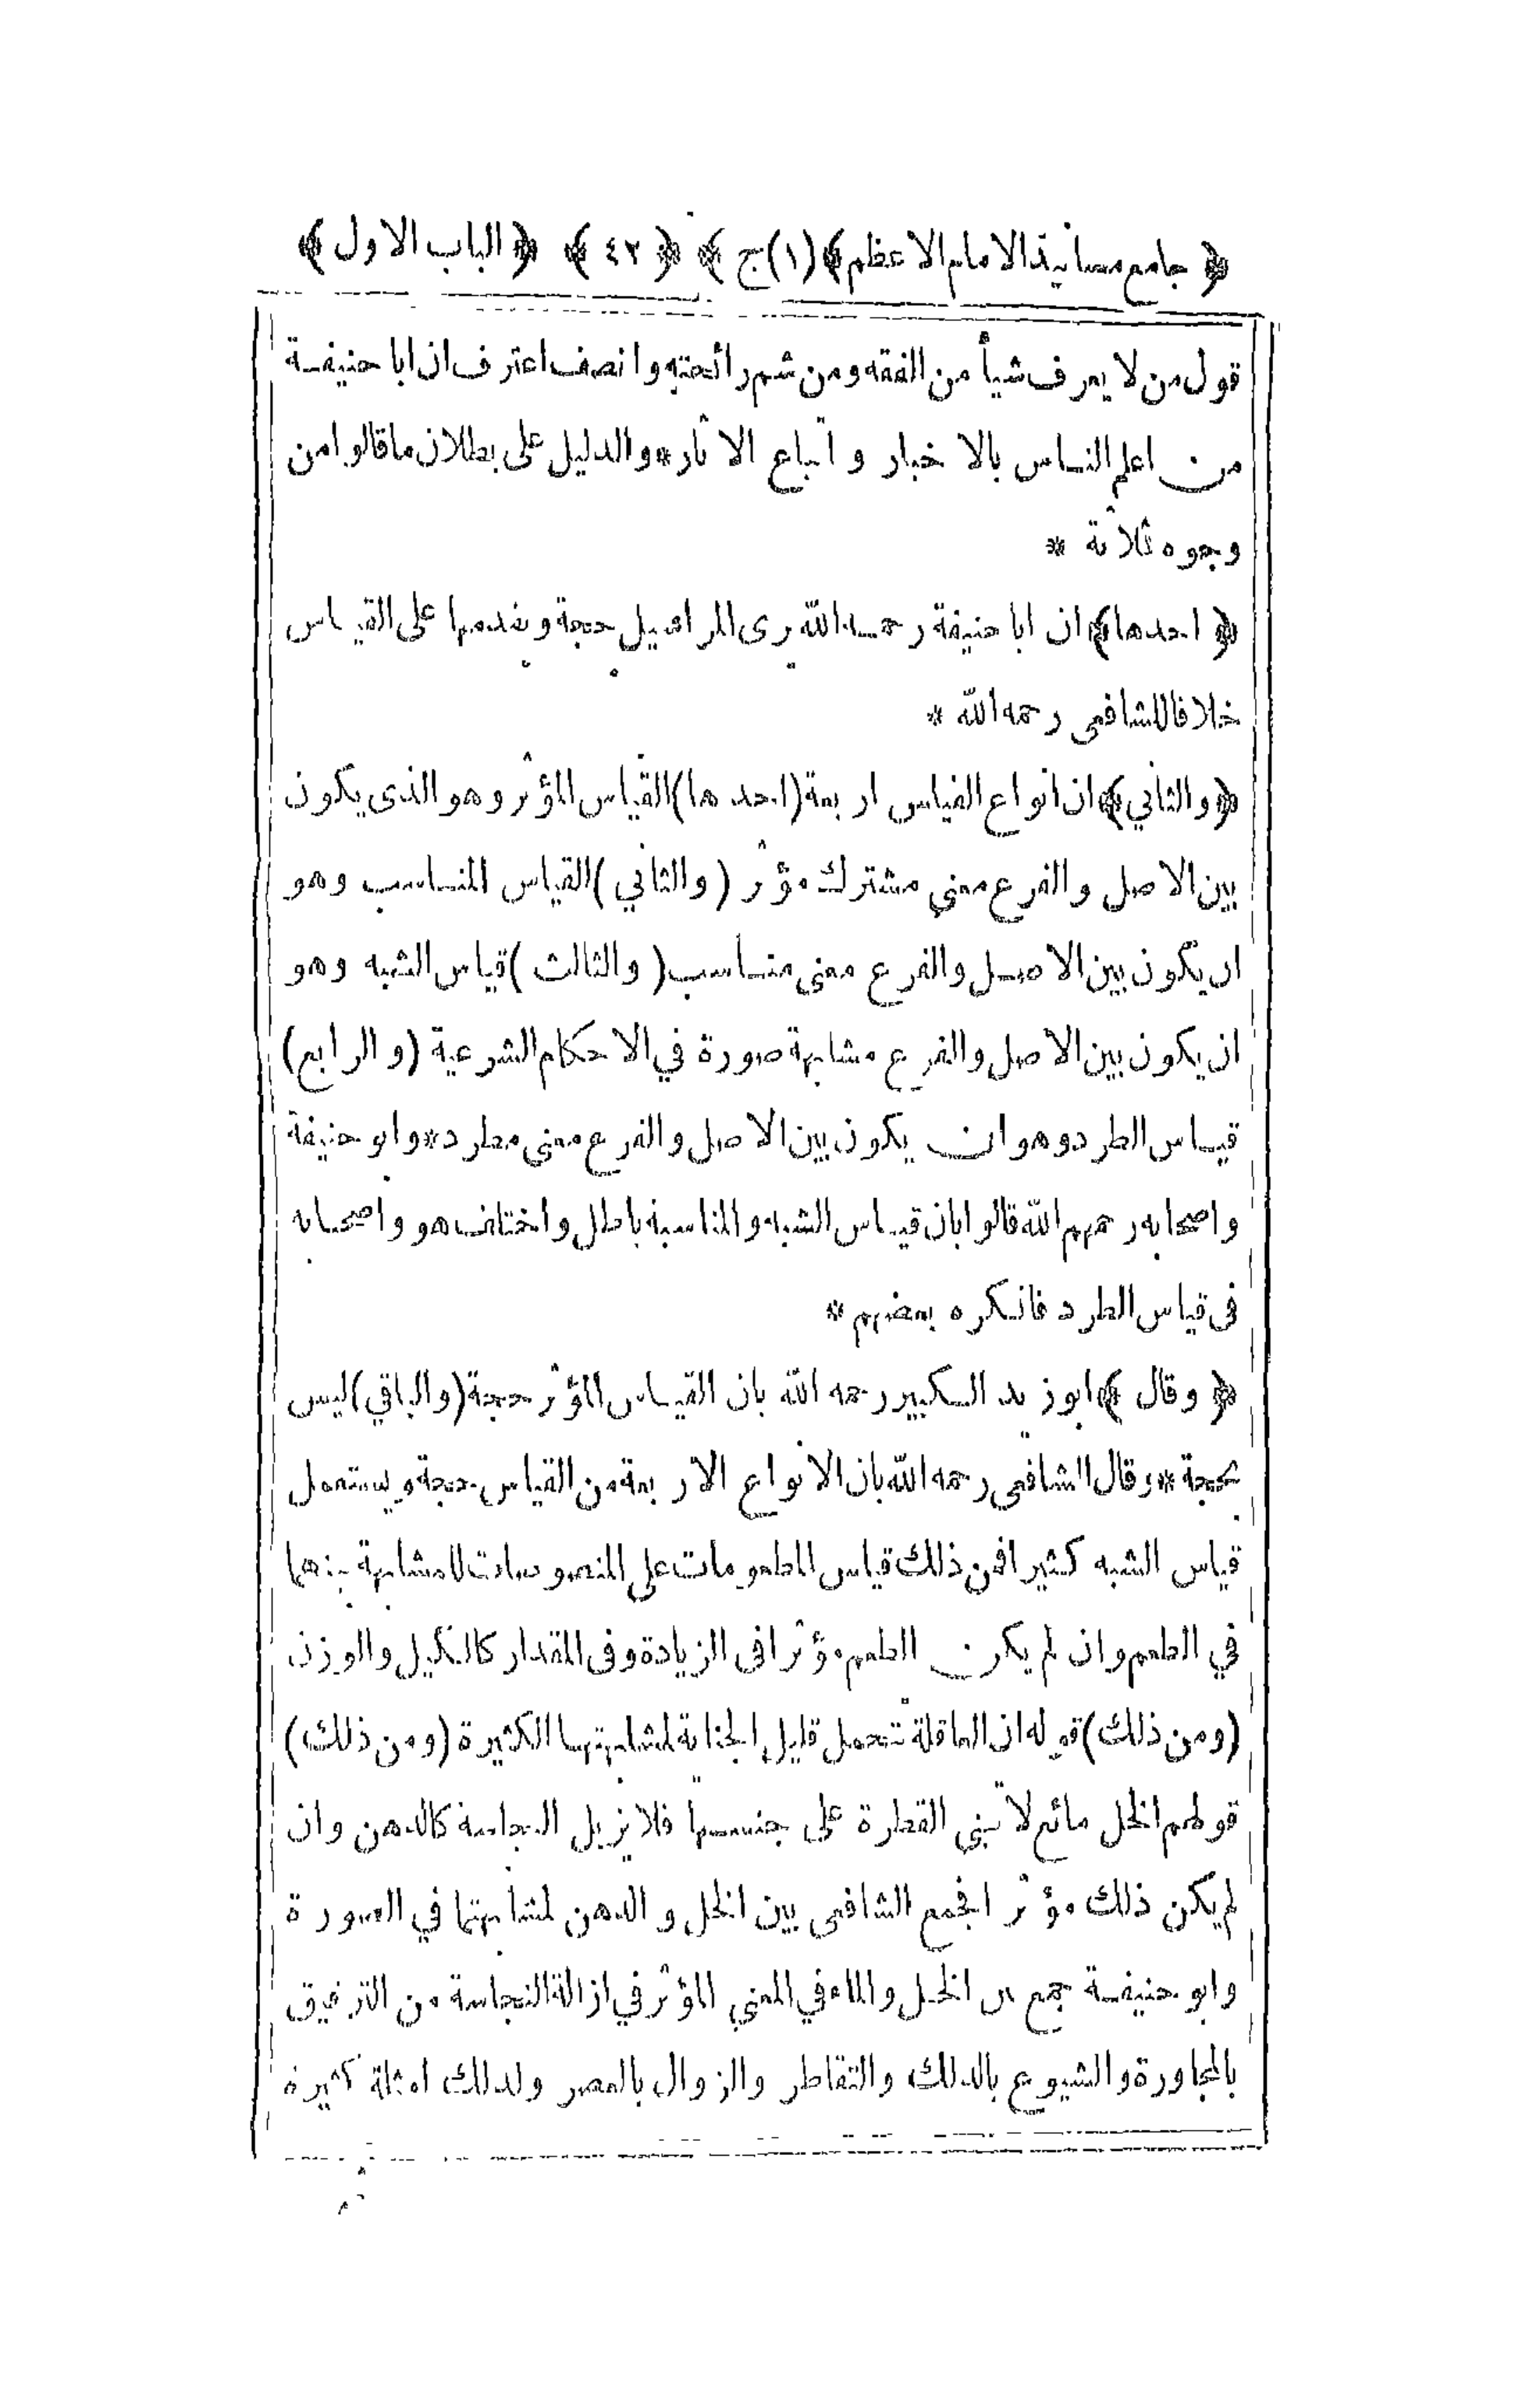 ﴿ جامع مسانيد الامام الاعظم ﴾ (١) ج ﴾ ﴿ ٤٢ ﴾ ﴿ الباب الاول ﴾
قول من لا يعرف شيأ من الفقه ومن شم رائحته وانصف اعترف ان ابا حنيفة
من اعلم الناس بالاخبار واتباع الاثار * والدليل على بطلان ما قالوا من
وجوه ثلاثة *
﴿ احدها ﴾ ان ابا حنيفة رحمه الله يرى المراسيل حجة ويقدمها على القياس
خلافا للشافعى رحمه الله *
﴿ والثاني ﴾ ان انواع القياس اربعة (احدها) القياس المؤثر وهو الذى يكون
بين الاصل والفرع معنى مشترك مؤثر (والثاني) القياس المناسب وهو
ان يكون بين الاصل والفرع معنى مناسب (والثالث) قياس الشبه وهو
ان يكون بين الاصل والفرع مشابهة صورة في الاحكام الشرعية (والرابع)
قياس الطرد وهو ان يكون بين الاصل والفرع معنى مطرد * وابو حنيفة
واصحابه رحمهم الله قالوا بان قياس الشبه والمناسبة باطل واختلف هو واصحابه
فى قياس الطرد فانكره بعضهم *
﴿ وقال ﴾ ابو زيد الكبير رحمه الله بان القياس المؤثر حجة (والباقي) ليس
بحجة * وقال الشافعى رحمه الله بان الانواع الاربعة من القياس حجة ويستعمل
قياس الشبه كثيرا فمن ذلك قياس المطعومات على المنصوصات للمشابهة بينهما
في الطعم وان لم يكن الطعم مؤثرا فى الزيادة وفى المقدار كالكيل والوزن
(ومن ذلك) قوله ان العاقلة تتحمل قليل الجناية لمشابهتها الكثيرة (ومن ذلك)
قولهم الخل مائع لا تبنى القنطرة على جنسها فلا يزيل النجاسة كالدهن وان
لم يكن ذلك مؤثرا فجمع الشافعى بين الخل والدهن لمشابهتهما في الصورة
وابو حنيفة جمع بين الخل والماء في المعنى المؤثر في ازالة النجاسة من الترقيق
بالمجاورة والشيوع بالدلك والتقاطر والزوال بالعصر ولذلك امثلة كثيرة